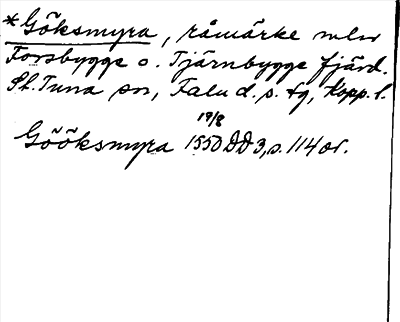 *Göksmyra, råmärke mlw
Forsbygge o. Tjärnbygge fjärd.
St. Tuna sn, Falu d. s. tg, Kopp. l.
19/8
Gööksmyra 1550 DD 3, s. 114 or.